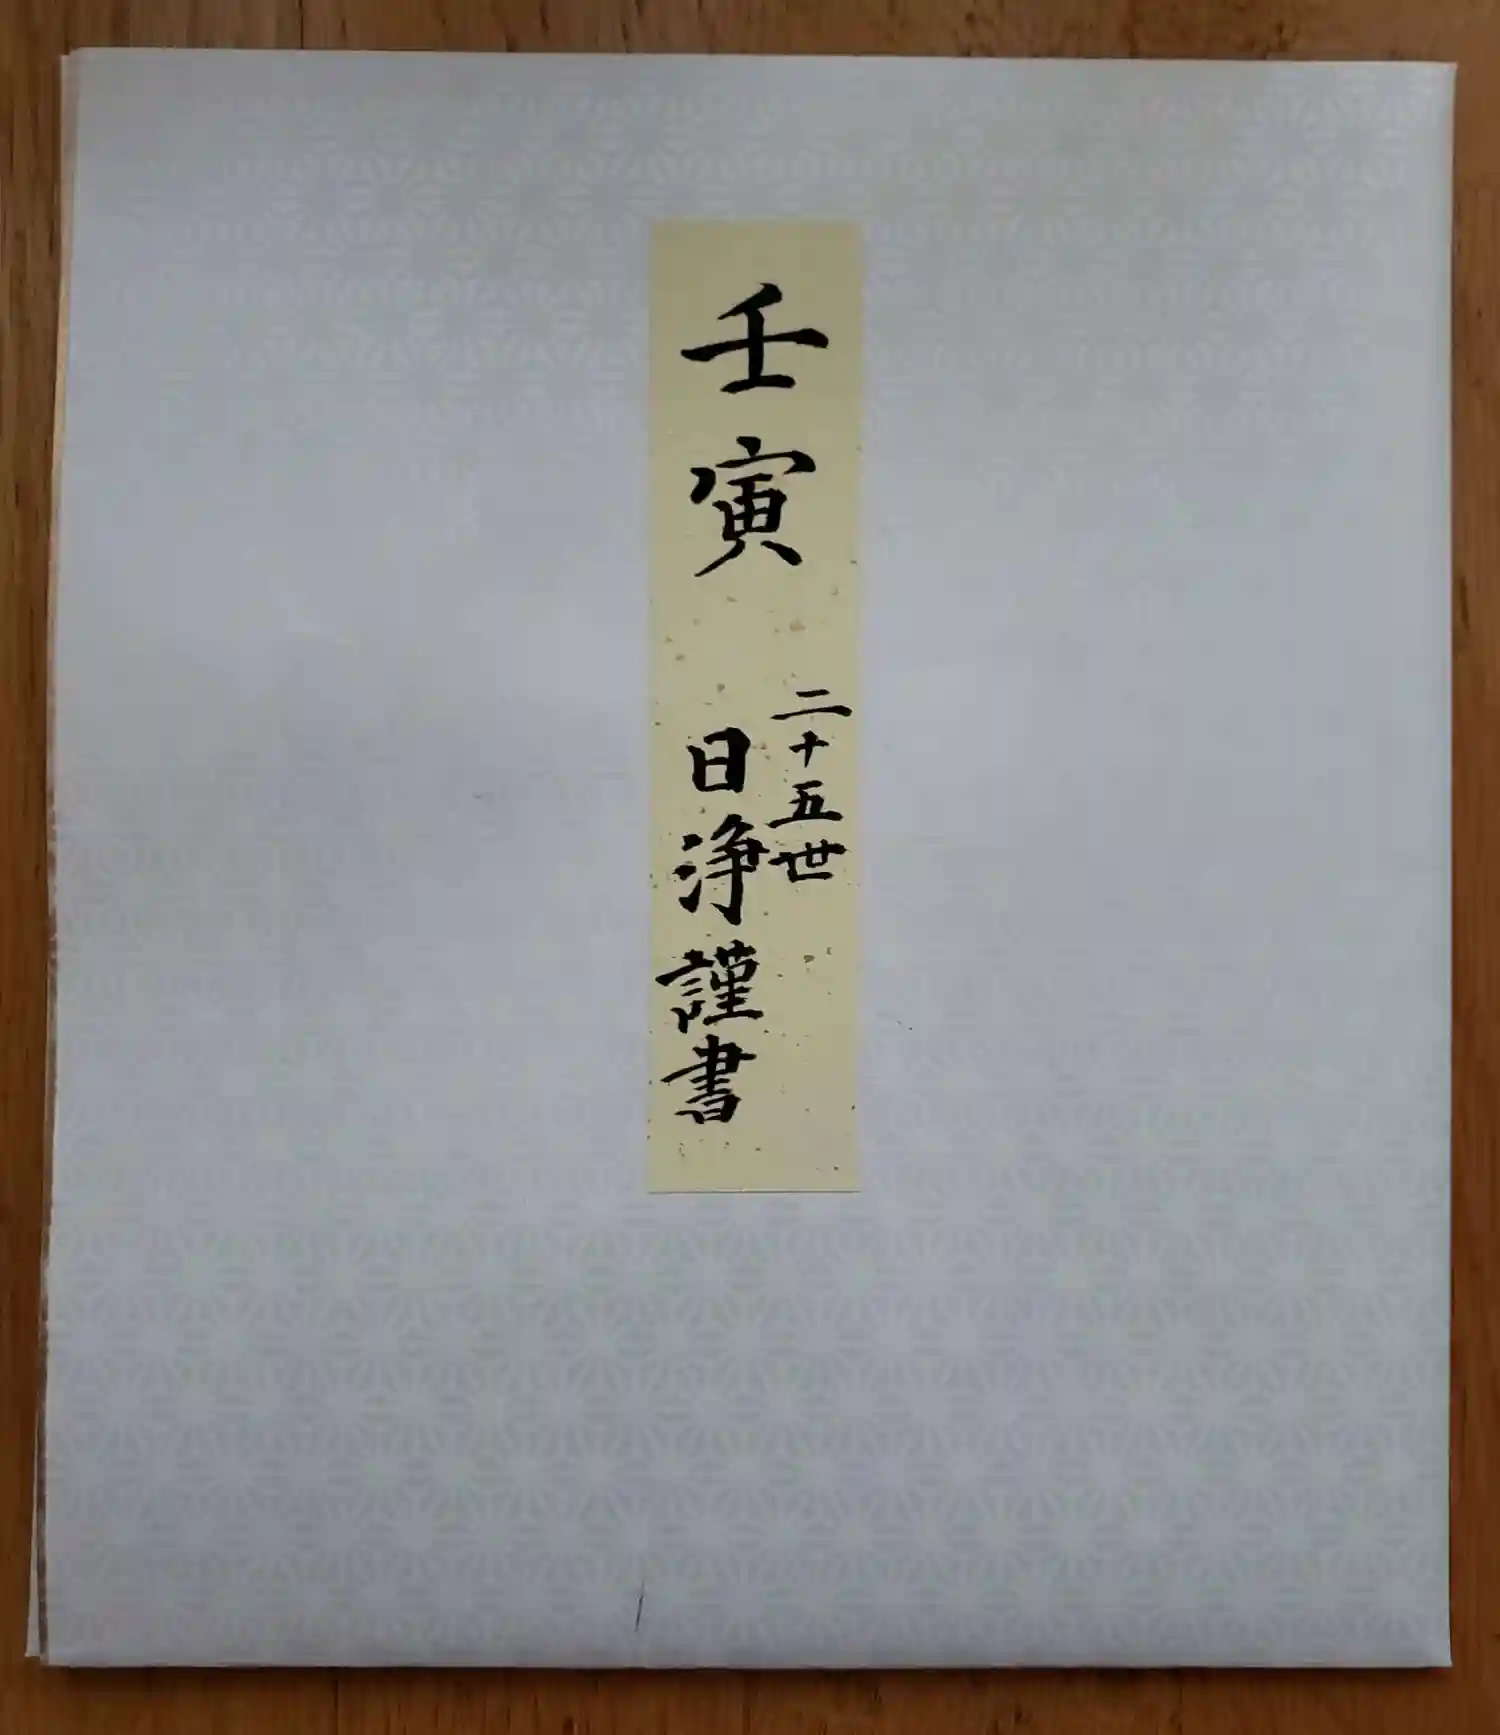 壬寅
二十五世
日浄謹書